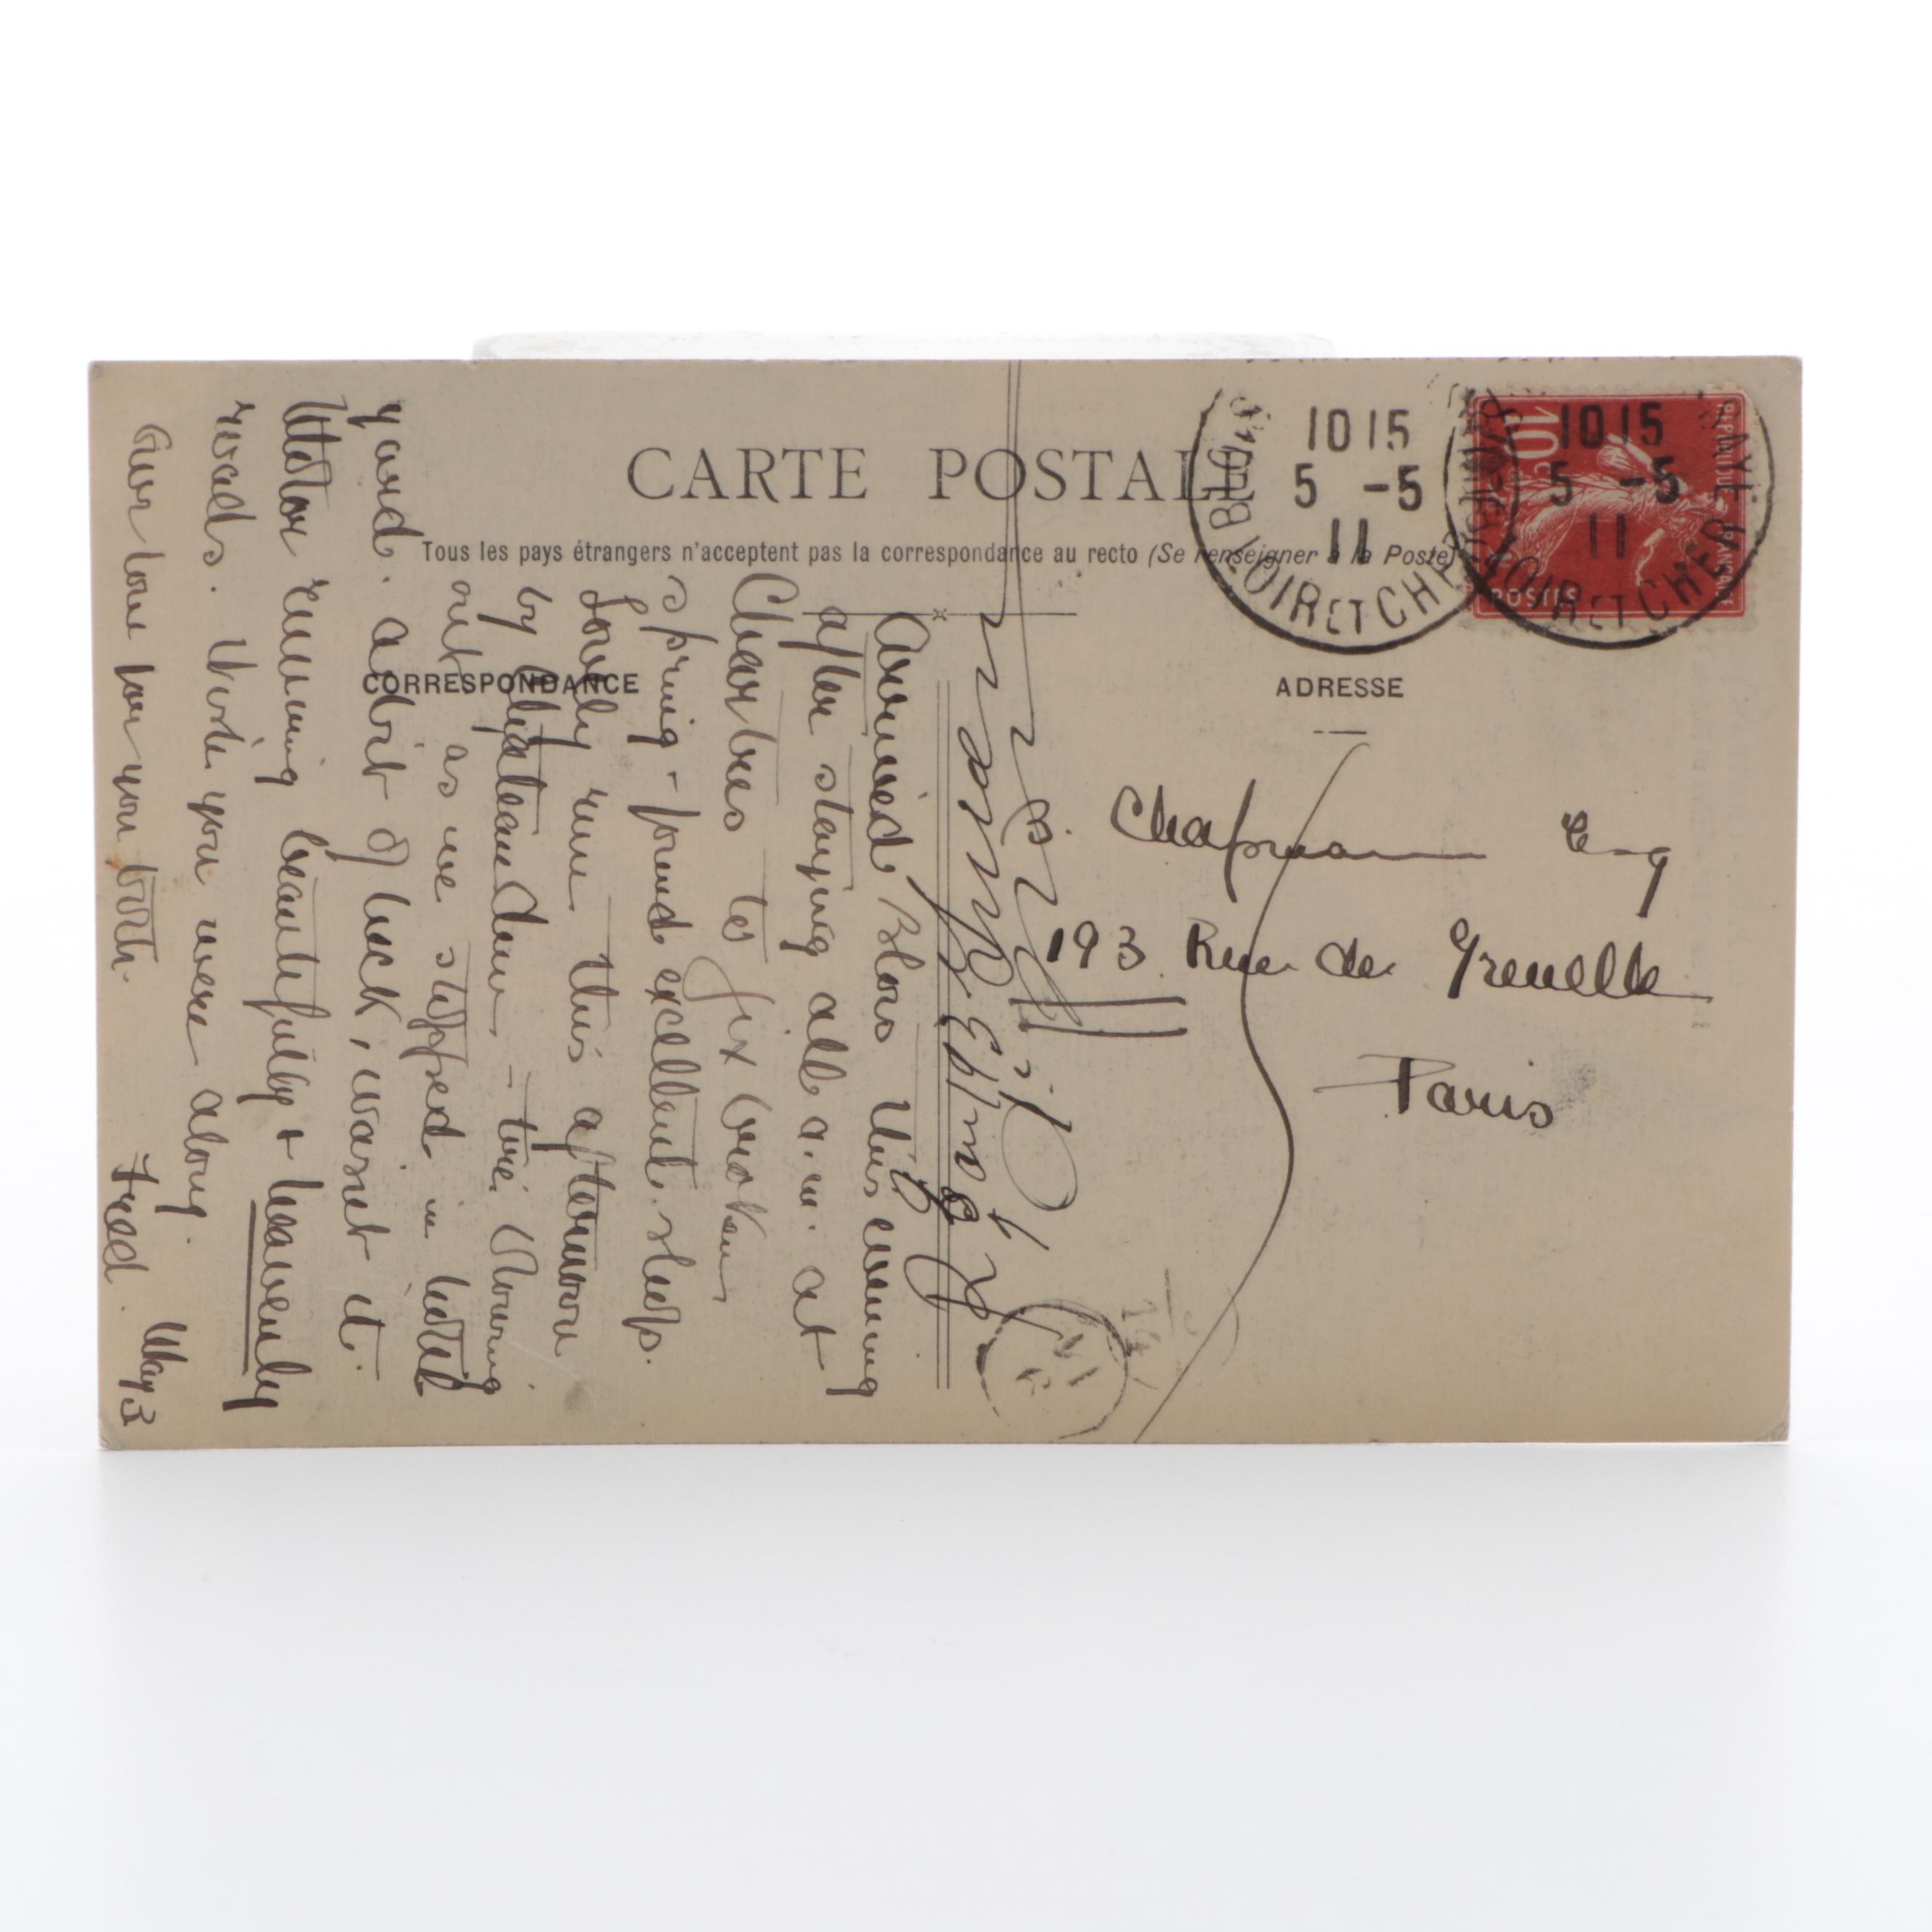 CARTE POSTALE
Tous les pays étrangers n'acceptent pas la correspondance au recto (Se renseigner à la Poste)
CORRESPONDANCE
ADRESSE
BLOIS
10 15
5 -5
11
LOIR ET CHER
10 15
5 -5
11
LOIR ET CHER
10c
REPUBLIQUE FRANÇAISE
POSTES
Chapman Esq
193 Rue de Grenelle
Paris
Arrived Blois this evening
after staying all a.m. at
Chartres to fix broken
spring - found excellent shops.
Lovely run this afternoon
by Chateaudun - tire blowing
out as we stopped in hotel
yard. a bit of luck, wasnt it.
Motor running beautifully + heavenly
roads. Wish you were along.
Give love for you both.
Fred. May 3